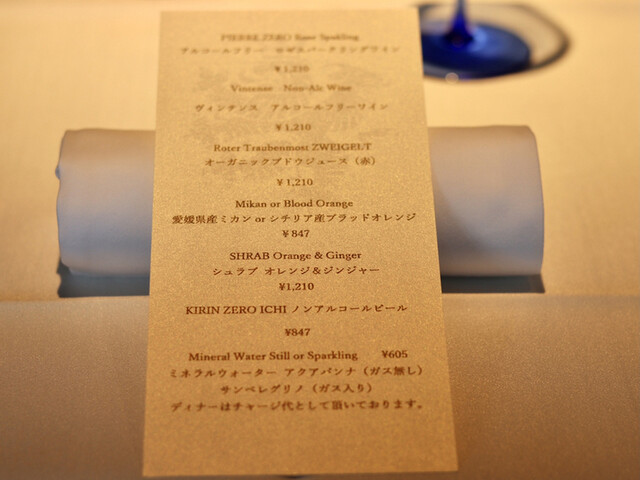 PIERRE ZERO Rose Sparkling
アルコールフリー ロゼスパークリングワイン
¥1,210
Vintense Non-Alc Wine
ヴィンテンス アルコールフリーワイン
¥1,210
Roter Traubenmost ZWEIGELT
オーガニックブドウジュース（赤）
¥1,210
Mikan or Blood Orange
愛媛県産ミカン or シチリア産ブラッドオレンジ
¥847
SHRAB Orange & Ginger
シュラブ オレンジ＆ジンジャー
¥1,210
KIRIN ZERO ICHI ノンアルコールビール
¥847
Mineral Water Still or Sparkling ¥605
ミネラルウォーター アクアパンナ（ガス無し）
サンペレグリノ（ガス入り）
ディナーはチャージ代として頂いております。